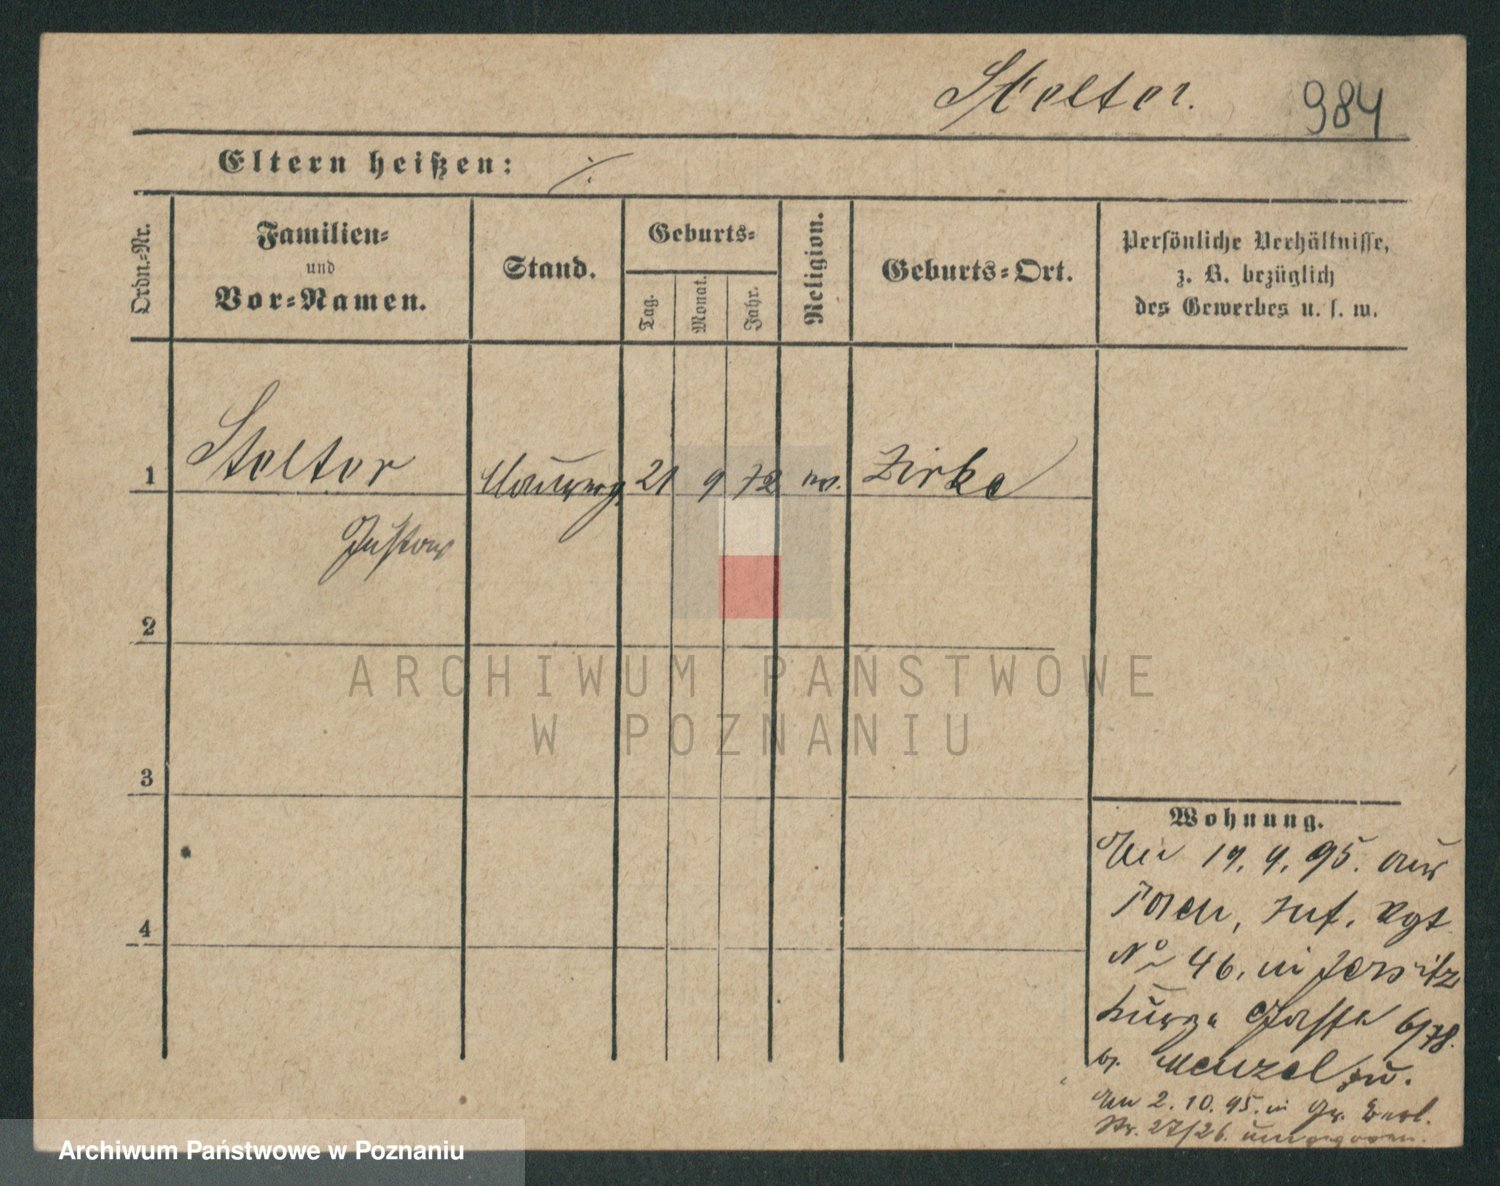 Stelter.
984
Eltern heißen: ./.
Ordn.-Nr.
Familien-
und
Vor-Namen.
Stand.
Geburts-
Tag.
Monat.
Jahr.
Religion.
Geburts-Ort.
Persönliche Verhältnisse,
z. B. bezüglich
des Gewerbes u. s. w.
1 Stelter Maurerg. 21 9 72 ev. Zirke
Gustav
2
3
4
ARCHIWUM PAŃSTWOWE
W POZNANIU
Wohnung.
Am 19. 9. 95. aus
Posen, Inf. Rgt
No 46. in Jersitz
Kurze Gasse 6/78.
b. Menzel zu.
Am 2. 10. 95. in Gr. Berl.
Str. 27/26. umgezogen.
Archiwum Państwowe w Poznaniu